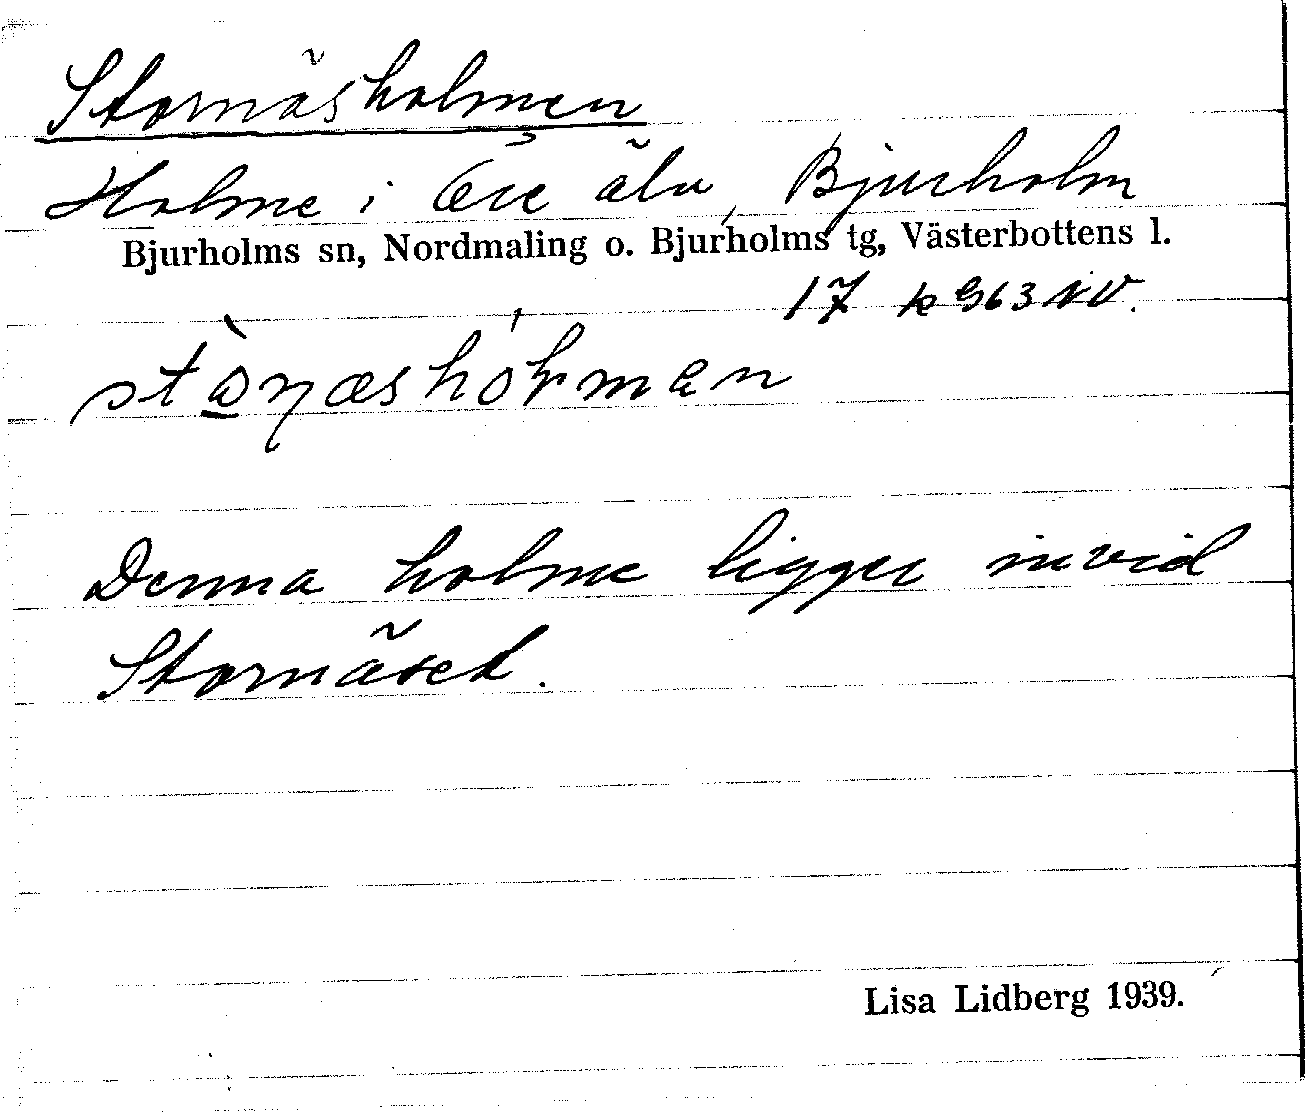 Stornäsholmen
Holme i Öre älv, Bjurholm
Bjurholms sn, Nordmaling o. Bjurholms tg, Västerbottens l.
17 k 963 NV.
Denna holme ligger invid
Stornäset.
Lisa Lidberg 1939.